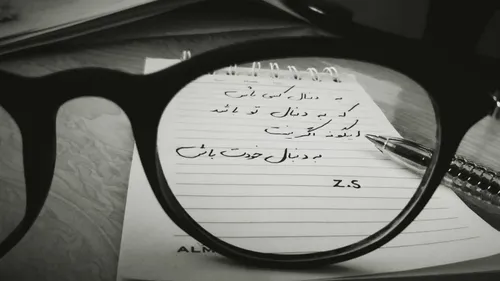 به دنبال کسی باش
که به دنبال تو باشد
اینگونه اگر نیست
به دنبال خودت باش
Z.S
ALM